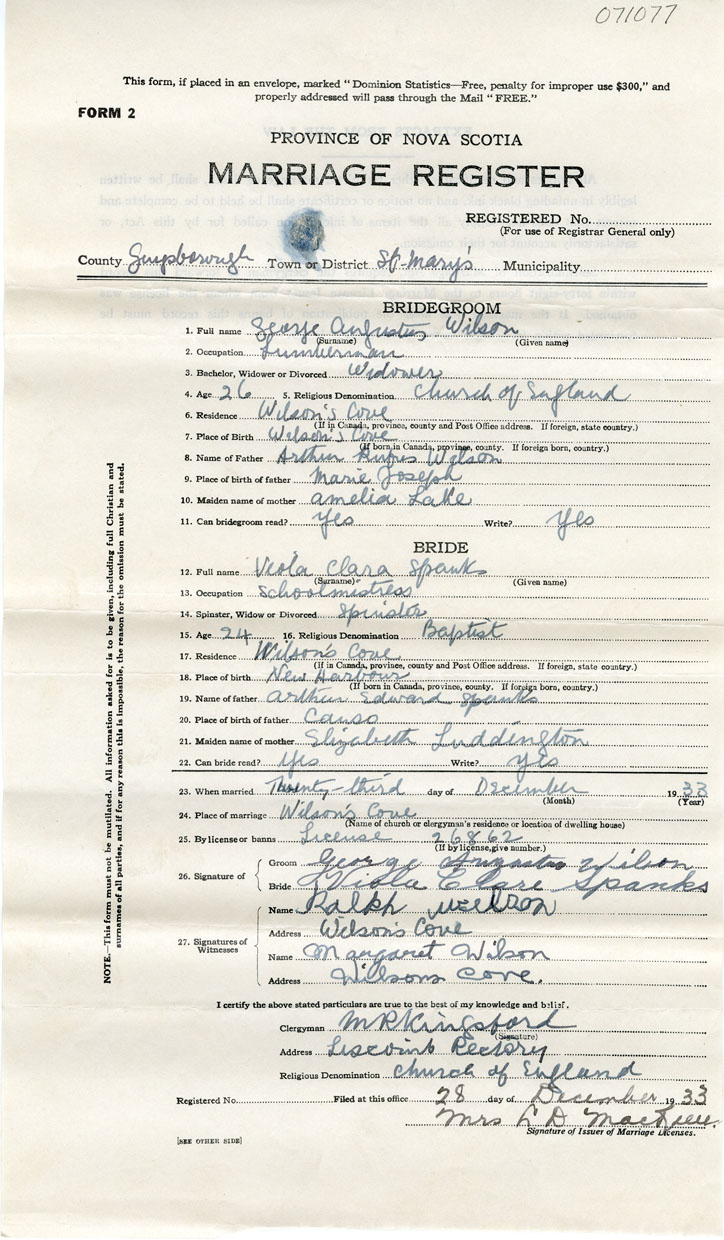 071077
This form, if placed in an envelope, marked "Dominion Statistics—Free, penalty for improper use $300," and
properly addressed will pass through the Mail "FREE."
FORM 2
PROVINCE OF NOVA SCOTIA
MARRIAGE REGISTER
REGISTERED No.
(For use of Registrar General only)
County Guysborough Town or District St. Mary's Municipality
BRIDEGROOM
1. Full name George Augustus Wilson
(Surname) (Given name)
2. Occupation Lumberman
3. Bachelor, Widower or Divorced Widower
4. Age 26 5. Religious Denomination Church of England
6. Residence Wilson's Cove
(If in Canada, province, county and Post Office address. If foreign, state country.)
7. Place of Birth Wilson's Cove
(If born in Canada, province, county. If foreign born, country.)
8. Name of Father Arthur Rufus Wilson
9. Place of birth of father Marie Joseph
10. Maiden name of mother Amelia Lake
11. Can bridegroom read? Yes Write? Yes
BRIDE
12. Full name Viola Clara Spanks
(Surname) (Given name)
13. Occupation Schoolmistress
14. Spinster, Widow or Divorced Spinster
15. Age 24 16. Religious Denomination Baptist
17. Residence Wilson's Cove
(If in Canada, province, county and Post Office address. If foreign, state country.)
18. Place of birth New Harbour
(If born in Canada, province, county. If foreign born, country.)
19. Name of father Arthur Edward Spanks
20. Place of birth of father Canso
21. Maiden name of mother Elizabeth Luddington
22. Can bride read? Yes Write? yes
23. When married Twenty-third day of December 1933
(Month) (Year)
24. Place of marriage Wilson's Cove
(Name of church or clergyman's residence or location of dwelling house)
25. By license or banns License 26862
(If by license, give number.)
26. Signature of Groom George Augustus Wilson
Bride Viola Clare Spanks
27. Signatures of Witnesses
Name Ralph Wilson
Address Wilson's Cove
Name Margaret Wilson
Address Wilsons Cove.
I certify the above stated particulars are true to the best of my knowledge and belief.
Clergyman M R Kingsford
(Signature)
Address Liscomb Rectory
Religious Denomination Church of England
Registered No. Filed at this office 28 day of December 1933
Mrs L D
Signature of Issuer of Marriage Licenses.
[SEE OTHER SIDE]
NOTE.—This form must not be mutilated. All information asked for is to be given, including full Christian and
surnames of all parties, and if for any reason this is impossible, the reason for the omission must be stated.